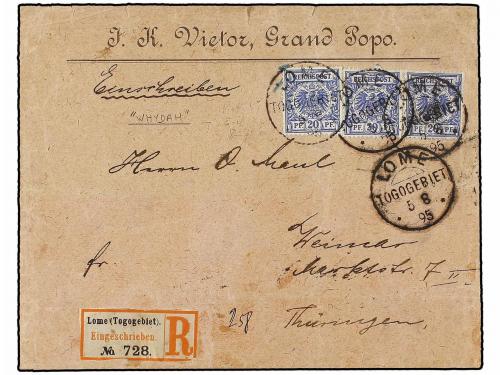 J. K. Vietor, Grand Popo.
Einschreiben
"WHYDAH"
REICHSPOST REICHSPOST REICHSPOST
20 PF. 20 PF. 20
LOME
TOGOGEBIET
LOME
TOGOGEBIET
LOME
95
LOME
TOGOGEBIET
5 8
95
Herrn O. Maul
Weimar
fr.
Marktstr. 7 II
Thüringen.
258
Lome (Togogebiet).
Eingeschrieben.
№ 728.
R